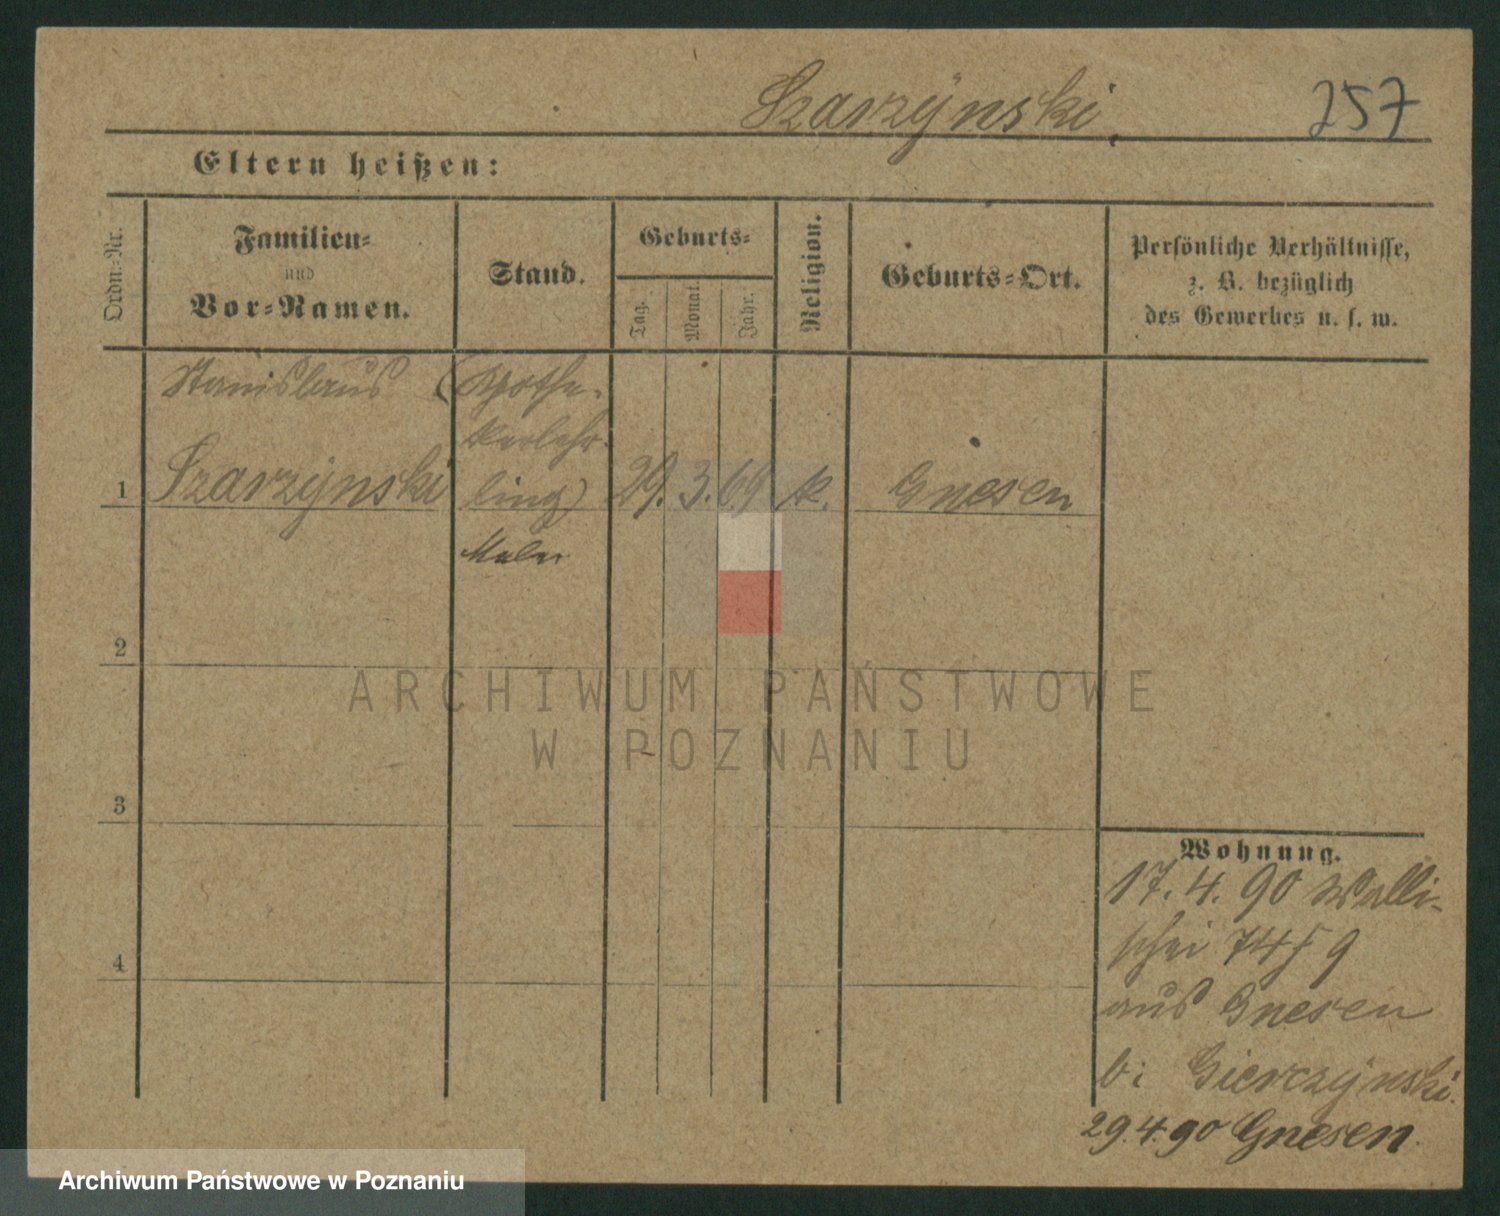 Szarzÿnski
257
Eltern heißen:
Ordn.-Nr.
Familien-
und
Vor-Namen.
Stand.
Geburts-
Tag.
Monat.
Jahr.
Religion.
Geburts-Ort.
Persönliche Verhältnisse,
z. B. bezüglich
des Gewerbes u. s. w.
Stanislaus (Apothe-
kerlehr-
1 Szarzÿnski ling) 29. 3. 69 k. Gnesen
Maler
2
ARCHIWUM PAŃSTWOWE
W POZNANIU
3
Wohnung.
17. 4. 90 Walli-
schei 74/5 9
aus Gnesen
bi Gierczÿnski.
29.4.90 Gnesen.
4
Archiwum Państwowe w Poznaniu